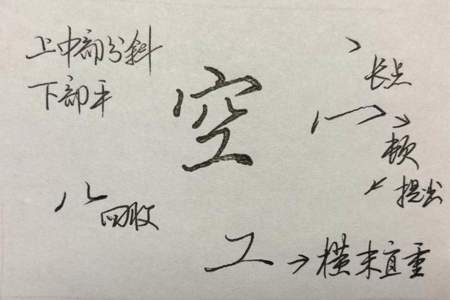 上中部分斜
下部平
空
长点
顿
提出
回收
工
横末直重